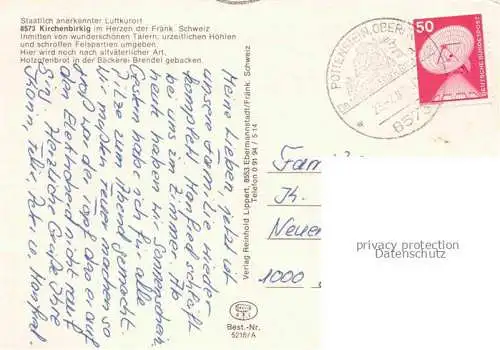 Staatlich anerkannter Luftkurort
8573 Kirchenbirkig im Herzen der Fränk. Schweiz
Inmitten von wunderschönen Tälern, urzeitlichen Höhlen
und schroffen Felspartien umgeben.
Hier wird noch nach altväterlicher Art,
Holzofenbrot in der Bäckerei Brendel gebacken.
Meine Lieben, jetzt ist
unsere Familie wieder
komplett. Manfred schläft
bei uns im Zimmer. Ab
heute haben wir Sonnenschein.
Gestern habe ich für alle
Pilze zum Abend gemacht.
Wir mußten Feuer machen so
groß war der Topf das er auf
den Elektroherd nicht rauf
Herzliche Grüße Ihre
u. Manfred.
Verlag Reinhold Lippert, 8553 Ebermannstadt/Fränk. Schweiz
Telefon 0 91 94 / 5 14
Best.-Nr.
5218/A
POTTENSTEIN, OBERFR
8573
50
DEUTSCHE BUNDESPOST
Fam
K.
Neuen
1000
privacy protection
Datenschutz